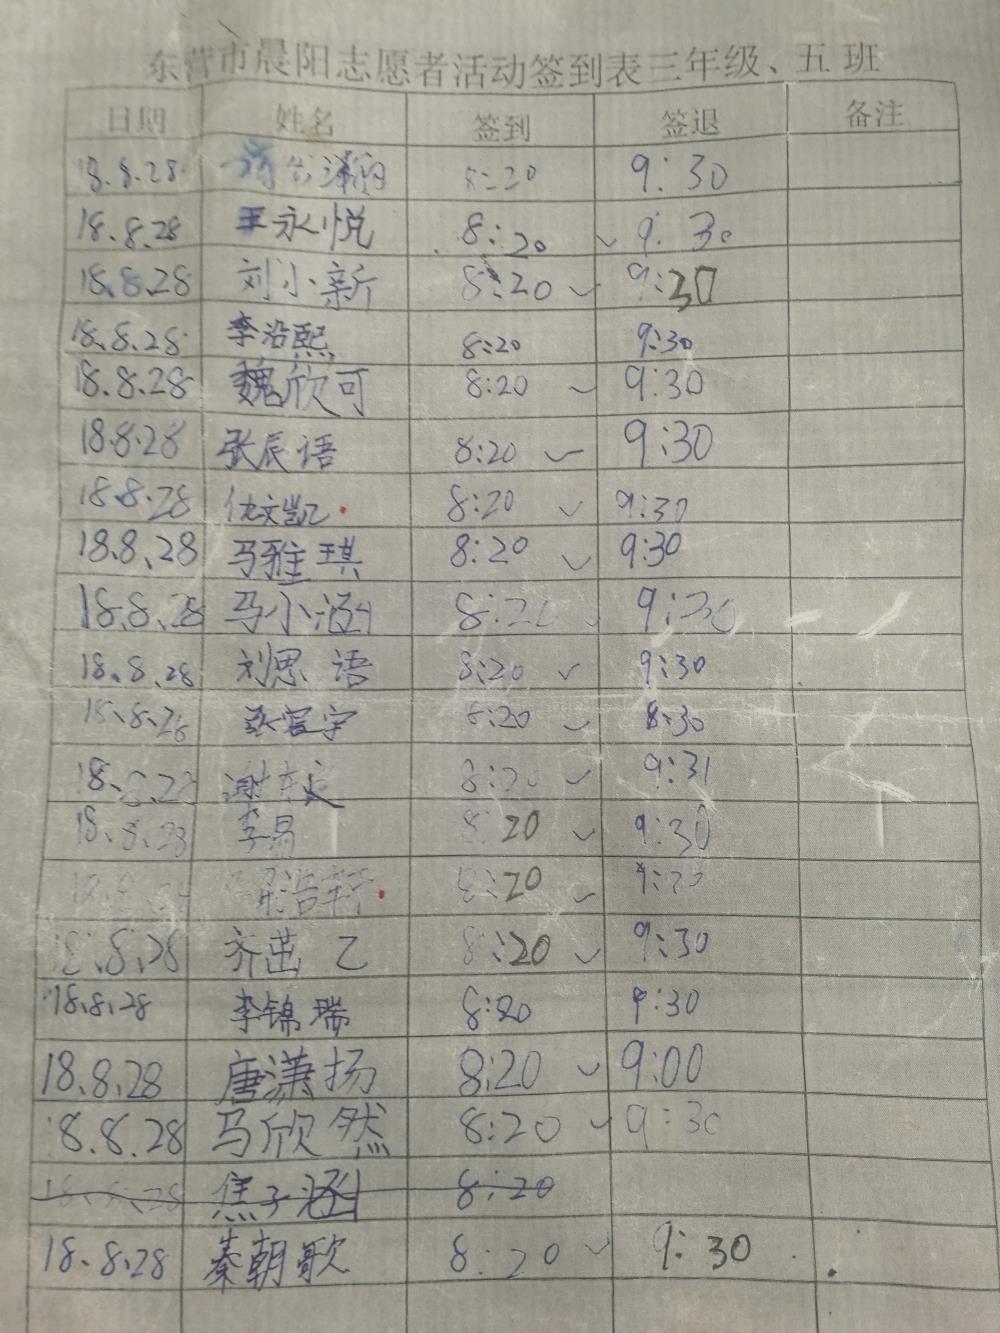 东营市晨阳志愿者活动签到表三年级、五班
日期 姓名 签到 签退 备注
18.8.28 8:20 9:30
18.8.28 王永悦 8:20 9:30
18.8.28 刘小新 8:20 9:30
18.8.28 李沿熙 8:20 9:30
18.8.28 魏欣可 8:20 9:30
18.8.28 张辰语 8:20 9:30
18.8.28 文凯 8:20 9:30
18.8.28 马雅琪 8:20 9:30
18.8.28 马小涵 8:20 9:30
18.8.28 刘思语 8:20 9:30
18.8.28 张宇 8:20 8:30
18.8.28 谢 8:20 9:31
18.8.28 李易 8:20 9:30
18.8.28 浩轩 8:20
18.8.28 齐茁乙 8:20 9:30
18.8.28 李锦瑞 8:20 9:30
18.8.28 唐潇扬 8:20 9:00
18.8.28 马欣然 8:20 9:30
18.8.28 焦子涵 8:20
18.8.28 秦朝歌 8:20 9:30